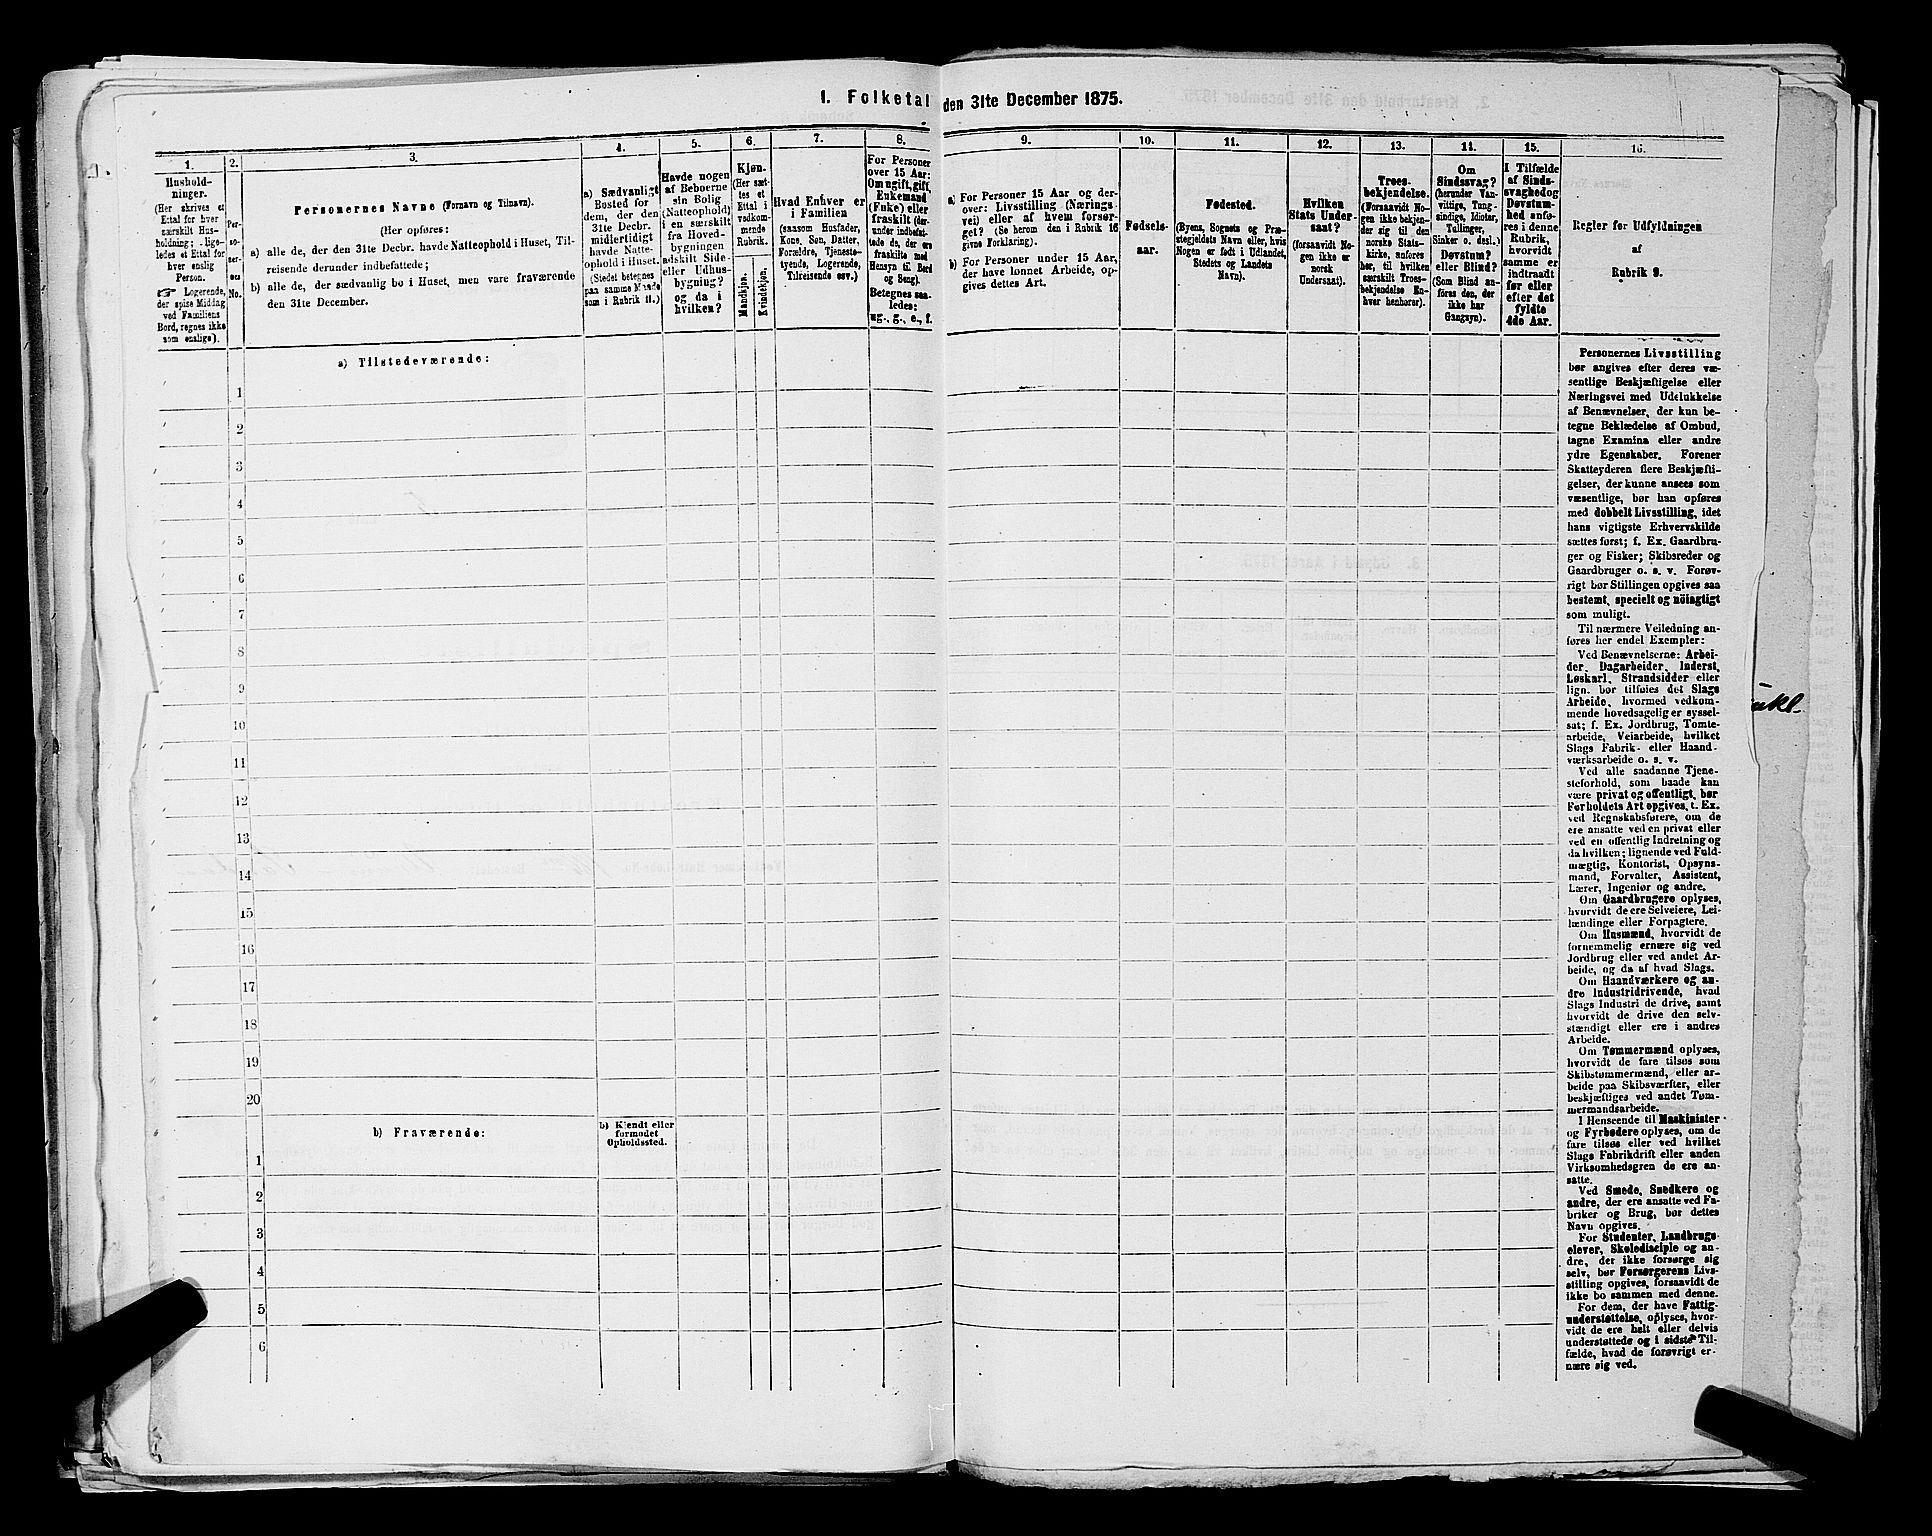 1. Folketal den 31te December 1875.
1.
Hushold-
ninger.
(Her skrives et
Ettal for hver
særskilt Hus-
holdning; lige-
ledes et Ettal for
hver enslig
Person.
☞ Logerende,
der spise Middag
ved Familiens
Bord, regnes ikke
som enslige).
2.
Per-
so-
ner-
nes
No.
3.
Personernes Navne (Fornavn og Tilnavn).
(Her opføres:
a) alle de, der den 31te Decbr. havde Natteophold i Huset, Til-
reisende derunder indbefattede;
b) alle de, der sædvanlig bo i Huset, men vare fraværende
den 31te December.
4.
a) Sædvanligt
Bosted for
dem, der den
31te Decbr.
midlertidigt
havde Natte-
ophold i Huset.
(Stedet betegnes
paa samme Maade
som i Rubrik 11.)
5.
Havde nogen
af Beboerne
sin Bolig
(Natteophold)
i en særskilt
fra Hoved-
bygningen
adskilt Side-
eller Udhus-
bygning?
og da i
hvilken?
6.
Kjøn.
(Her sæt-
tes et
Ettal i
vedkom-
mende
Rubrik.
Mandkjøn.
Kvindekjøn.
7.
Hvad Enhver er
i Familien
(saasom Husfader,
Kone, Søn, Datter,
Forældre, Tjeneste-
tyende, Logerende,
Tilreisende osv.)
8.
For Personer
over 15 Aar:
Om ugift, gift,
Enkemand
(Enke) eller
fraskilt (her-
under indbefat-
tede de, der ere
fraskilte med
Hensyn til Bord
og Seng).
Betegnes saa-
ledes:
ug., g., e., f.
9.
a) For Personer 15 Aar og der-
over: Livsstilling (Nærings-
vei) eller af hvem forsør-
get? (Se herom den i Rubrik 16
givne Forklaring).
b) For Personer under 15 Aar,
der have lønnet Arbeide, op-
gives dettes Art.
10.
Fødsels-
aar.
11.
Fødested.
(Byens, Sognets og Præ-
stegjeldets Navn eller, hvis
Nogen er født i Udlandet,
Stedets og Landets
Navn).
12.
Hvilken
Stats Under-
saat?
(forsaavidt No-
gen ikke er
norsk
Undersaat).
13.
Troes-
bekjendelse.
(Forsaavidt No-
gen ikke bekjen-
der sig til den
norske Stats-
kirke, anføres
her, til hvilken
særskilt Troes-
bekjendelse En-
hver henhører).
14.
Om
Sindssvag?
(herunder Van-
vittige, Tung-
sindige, Idioter,
Tullinger,
Sinker o. desl.)
Døvstum?
eller Blind?
(Som Blind an-
føres den, der
ikke har
Gangsyn).
15.
I Tilfælde
af Sinds-
svaghed og
Døvstum-
hed anfø-
res i denne
Rubrik,
hvorvidt
samme er
indtraadt
før eller
efter det
fyldte
4de Aar.
16.
Regler for Udfyldningen
af
Rubrik 9.
a) Tilstedeværende:
1
2
3
4
5
6
7
8
9
10
11
12
13
14
15
16
17
18
19
20
b) Fraværende:
b) Kjendt eller
formodet
Opholdssted.
1
2
3
4
5
6
Personernes Livsstilling
bør angives efter deres væ-
sentlige Beskjæftigelse eller
Næringsvei med Udelukkelse
af Benævnelser, der kun be-
tegne Beklædelse af Ombud,
tagne Examina eller andre
ydre Egenskaber. Forener
Skatteyderen flere Beskjæfti-
gelser, der kunne ansees som
væsentlige, bør han opføres
med dobbelt Livsstilling, idet
hans vigtigste Erhvervskilde
sættes først; f. Ex. Gaardbru-
ger og Fisker; Skibsreder og
Gaardbruger o. s. v. Forøv-
rigt bør Stillingen opgives saa
bestemt, specielt og nöiagtigt
som muligt.
Til nærmere Veiledning an-
føres her endel Exempler:
Ved Benævnelserne: Arbei-
der, Dagarbeider, Inderst,
Løskarl, Strandsidder eller
lign. bør tilføies det Slags
Arbeide, hvormed vedkom-
mende hovedsagelig er syssel-
sat; f. Ex. Jordbrug, Tomte-
arbeide, Veiarbeide, hvilket
Slags Fabrik- eller Haand-
værksarbeide o. s. v.
Ved alle saadanne Tjene-
steforhold, som baade kan
være privat og offentligt, bør
Forholdets Art opgives, t. Ex.
ved Regnskabsførere, om de
ere ansatte ved en privat eller
ved en offentlig Indretning og
da hvilken; lignende ved Fuld-
mægtig, Kontorist, Opsyns-
mand, Forvalter, Assistent,
Lærer, Ingeniør og andre.
Om Gaardbrugere oplyses,
hvorvidt de ere Selveiere, Lei-
lændinge eller Forpagtere.
Om Husmænd, hvorvidt de
fornemmelig ernære sig ved
Jordbrug eller ved andet Ar-
beide, og da af hvad Slags.
Om Haandværkere og an-
dre Industridrivende, hvad
Slags Industri de drive, samt
hvorvidt de drive den selv-
stændigt eller ere i andres
Arbeide.
Om Tømmermænd oplyses,
hvorvidt de fare tilsøs som
Skibstømmermænd, eller ar-
beide paa Skibsværfter, eller
beskjæftiges ved andet Tøm-
mermandsarbeide.
I Henseende til Maskinister
og Fyrbødere oplyses, om de
fare tilsøs eller ved hvilket
Slags Fabrikdrift eller anden
Virksomhedsgren de ere an-
satte.
Ved Smede, Snedkere og
andre, der ere ansatte ved Fa-
briker og Brug, bør dettes
Navn opgives.
For Studenter, Landbrugs-
elever, Skoledisciple og an-
dre, der ikke forsørge sig
selv, bør Forsørgerens Livs-
stilling opgives, forsaavidt de
ikke bo sammen med denne.
For dem, der have Fattig-
understøttelse, oplyses, hvor-
vidt de ere helt eller delvis
understøttede og i sidste Til-
fælde, hvad de forøvrigt er-
nære sig ved.